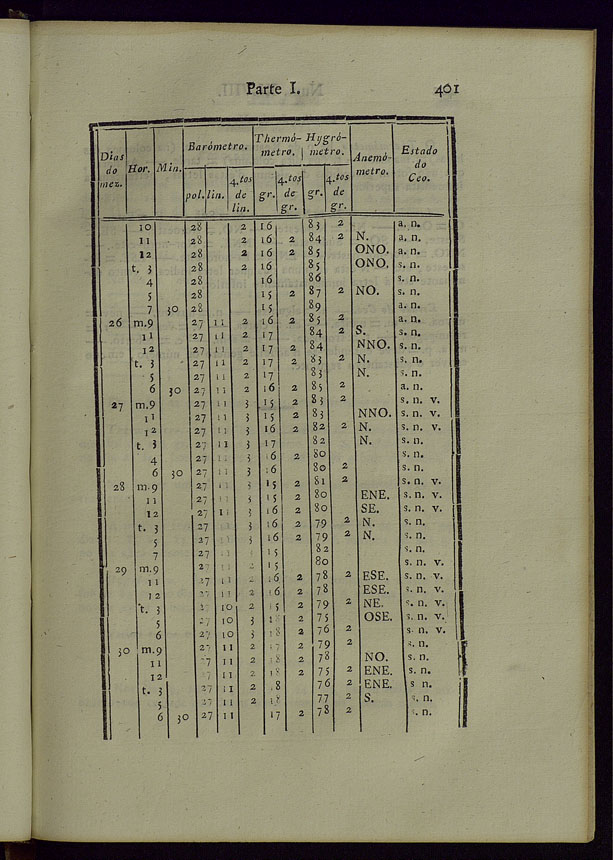 Parte I.
401
Dias do mez. Hor. Min. Barómetro. Thermómetro. Hygrómetro. Anemómetro. Estado do Ceo.
pol. lin. 4.tos de lin. gr. 4.tos de gr. gr. 4.tos de gr.
10 28 2 16 83 2 a. n.
11 28 2 16 2 84 2 N. a. n.
12 28 2 16 2 85 ONO. a. n.
t. 3 28 2 16 85 ONO. s. n.
4 28 16 86 s. n.
5 28 15 2 87 2 NO. s. n.
7 30 28 15 89 a. n.
26 m.9 27 11 2 16 2 85 2 a. n.
11 27 11 2 17 84 2 S. s. n.
12 27 11 2 17 2 84 NNO. s. n.
t. 3 27 11 2 17 2 83 2 N. s. n.
5 27 11 2 17 83 N. s. n.
6 30 27 11 2 16 2 85 2 a. n.
27 m.9 27 11 3 15 2 83 2 s. n. v.
11 27 11 3 15 2 83 NNO. s. n. v.
12 27 11 3 16 2 82 2 N. s. n. v.
t. 3 27 11 3 17 82 N. s. n.
4 27 11 3 16 2 80 s. n.
6 30 27 11 3 16 80 2 s. n.
28 m.9 27 11 3 15 2 81 2 s. n. v.
11 27 11 3 15 2 80 ENE. s. n. v.
12 27 11 3 16 2 80 SE. s. n. v.
t. 3 27 11 3 16 2 79 2 N. s. n.
5 27 11 3 16 2 79 2 N. s. n.
7 27 11 15 82 s. n.
29 m.9 27 11 15 80 s. n. v.
11 27 11 16 2 78 2 ESE. s. n. v.
12 27 11 2 16 2 78 ESE. s. n. v.
t. 3 27 10 2 15 2 79 2 NE. s. n. v.
5 27 10 3 18 2 75 OSE. s. n. v.
6 27 10 3 18 2 76 2 s. n. v.
30 m.9 27 11 2 17 2 79 2 s. n.
11 27 11 2 18 2 78 NO. s. n.
12 27 11 2 18 2 75 2 ENE. s. n.
t. 3 27 11 2 18 76 2 ENE. s n.
5 27 11 2 18 77 2 S. s. n.
6 30 27 11 17 2 78 2 s. n.